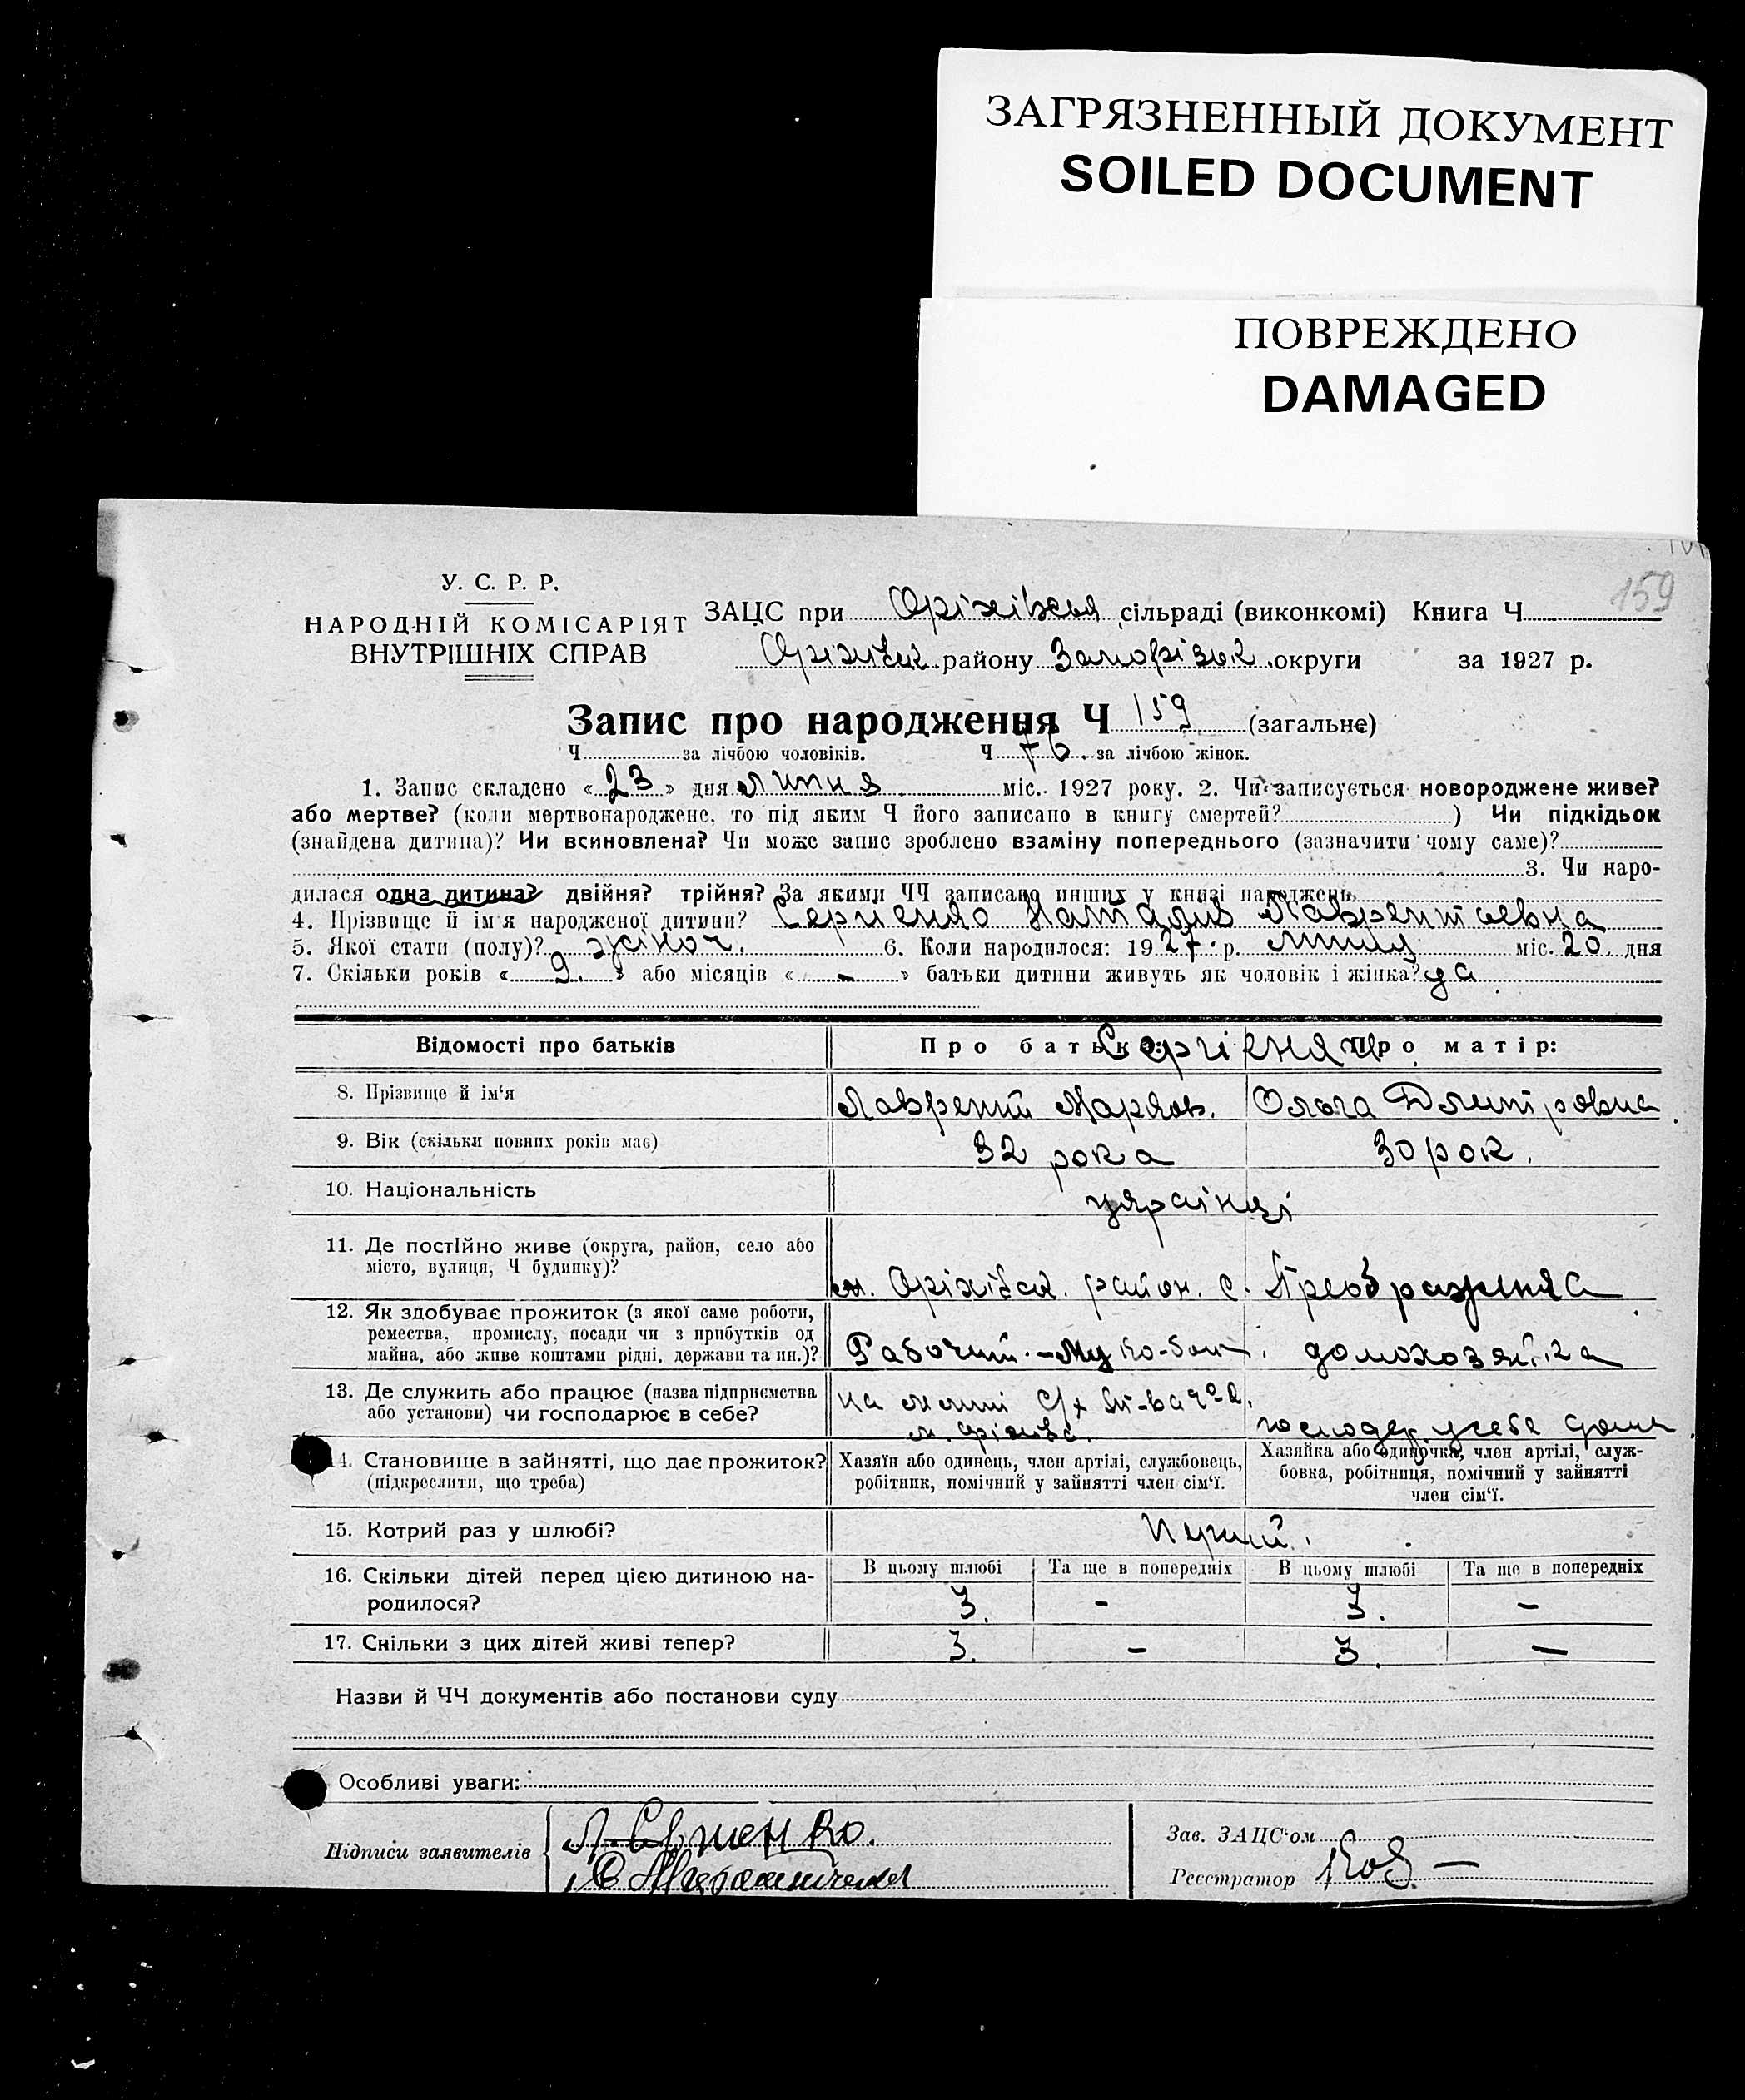 ЗАГРЯЗНЕННЫЙ ДОКУМЕНТ
SOILED DOCUMENT
ПОВРЕЖДЕНО
DAMAGED
159
У. С. Р. Р.
НАРОДНІЙ КОМІСАРІЯТ
ВНУТРІШНІХ СПРАВ
ЗАЦС при Оріхівськ сільраді (виконкомі) Книга Ч
району Запорізьк округи за 1927 р.
Запис про народження Ч 159 (загальне)
Ч за лічбою чоловіків. Ч 76 за лічбою жінок.
1. Запис складено «23» дня липня міс. 1927 року. 2. Чи записується новороджене живе?
або мертве? (коли мертвонароджене, то під яким Ч його записано в книгу смертей?) Чи підкідьок
(знайдена дитина)? Чи всиновлена? Чи може запис зроблено взаміну попереднього (зазначити чому саме)?
3. Чи наро-
дилася одна дитина? двійня? трійня? За якими ЧЧ записано инших у книзі народжень
4. Прізвище й ім'я народженої дитини? Сергиенко Наталия Лаврентиевна
5. Якої стати (полу)? жіноч. 6. Коли народилося: 1927 р. липця міс. 20 дня
7. Скільки років «9.» або місяців «-» батьки дитини живуть як чоловік і жінка? да
Відомості про батьків Про батька: Про матір:
Сергієнко
8. Прізвище й ім‘я Лаврентий Марков. Ольга Дмитровна
9. Вік (скільки повних років має) 32 рока 30 рок.
10. Національність українці
11. Де постійно живе (округа, район, село або
місто, вулиця, Ч будинку)? м. Оріхівськ. район. с. Преображенка
12. Як здобуває прожиток (з якої саме роботи,
ремества, промислу, посади чи з прибутків од
майна, або живе коштами рідні, держави та ин.)? Рабочий - домохозяйка
13. Де служить або працює (назва підприємства
або установи) чи господарює в себе? на млині
господар. у себе дома
14. Становище в зайнятті, що дає прожиток?
(підкреслити, що треба)
Хазяїн або одинець, член артілі, службовець,
робітник, помічний у зайнятті член сім‘ї.
Хазяйка або одиночка, член артілі, служ-
бовка, робітниця, помічний у зайнятті
член сім‘ї.
15. Котрий раз у шлюбі? Перший.
16. Скільки дітей перед цією дитиною на-
родилося?
В цьому шлюбі Та ще в попередніх В цьому шлюбі Та ще в попередніх
3. - 3. -
17. Скільки з цих дітей живі тепер? 3. - 3. -
Назви й ЧЧ документів або постанови суду
Особливі уваги:
Підписи заявителів
Л. Сергиенко.
Зав. ЗАЦС‘ом
Реєстратор